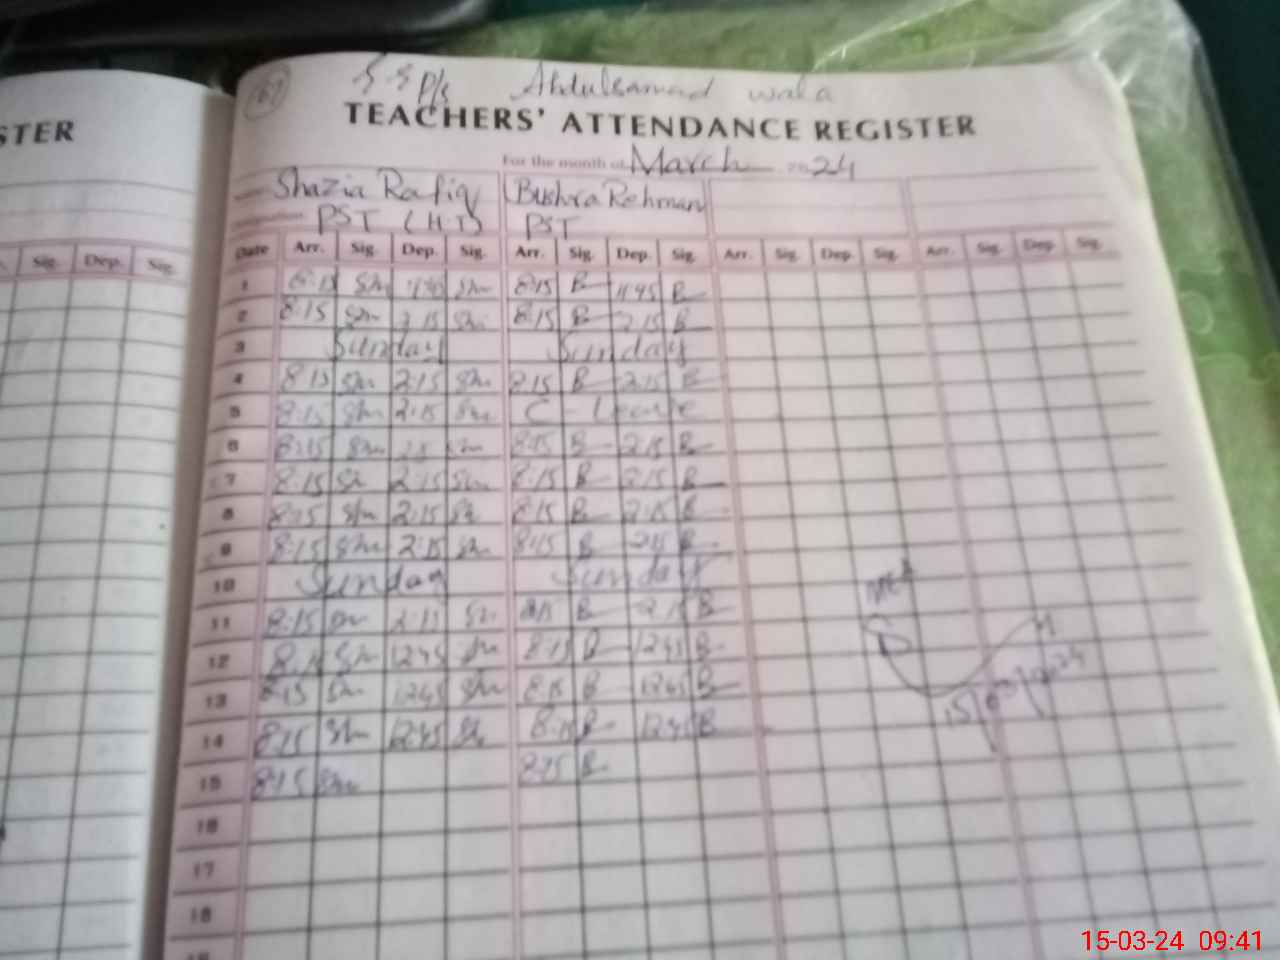 STER
Sig. Dep. Sig.
167
P/s Abdulsamad wala
TEACHERS' ATTENDANCE REGISTER
For the month of March 2024
Shazia Rafiq Bushra Rehman
PST (H.T) PST
Date Arr. Sig. Dep. Sig. Arr. Sig. Dep. Sig. Arr. Sig. Dep. Sig. Arr. Sig. Dep. Sig.
1 8:15 Shr 8:15 B 11:45 B
2 8:15 Shr 2:15 Shr 8:15 B 2:15 B
3 Sunday Sunday
4 8:15 Shr 2:15 Shr 8:15 B 2:15 B
5 8:15 Shr 2:15 Shr C-Leave
6 8:15 Shr Shr 8:15 B 2:15 B
7 8:15 Shr 2:15 Shr 8:15 B 2:15 B
8 8:15 Shr 2:15 Shr 8:15 B 2:15 B
9 8:15 Shr 2:15 Shr 8:15 B 2:15 B
10 Sunday Sunday
11 8:15 Shr 2:15 Shr 8:15 B 2:15 B
12 8:15 Shr 12:45 Shr 8:15 B 12:45 B
13 8:15 Shr 12:45 Shr 8:15 B 12:45 B
14 8:15 Shr 12:45 Shr 8:15 B 12:45 B
15 8:15 Shr 8:15 B
16
17
18
MEA
15/03/2024
15-03-24 09:41